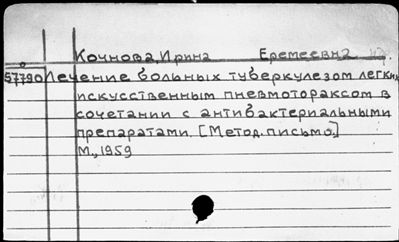 Кочнова, Ирина Еремеевна
57790 Лечение больных туберкулезом легких
искусственным пневмотораксом в
сочетании с антибактериальными
препаратами. [Метод. письмо.]
М., 1959